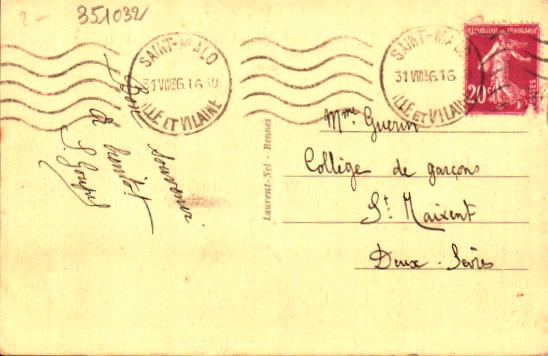 2- 351032
SAINT-MALO
31 VIII 36.16
ILLE ET VILAINE
SAINT-MALO
31 VIII 36.16
ILLE ET VILAINE
RÉPUBLIQUE FRANÇAISE
20c
POSTES
Bon souvenir
à bientôt
Laurent-Nel - Rennes
Mme Guerin
Collège de garçons
St Maixent
Deux-Sèvres